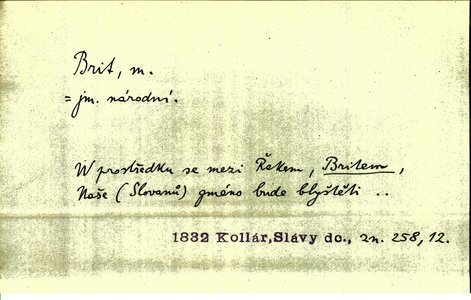 Brit, m.
= jm. národní.
W prostředku se mezi Řekem, Britem,
Naše (Slovanů) gméno bude blyštěti ..
1832 Kollár, Slávy dc., zn. 258, 12.